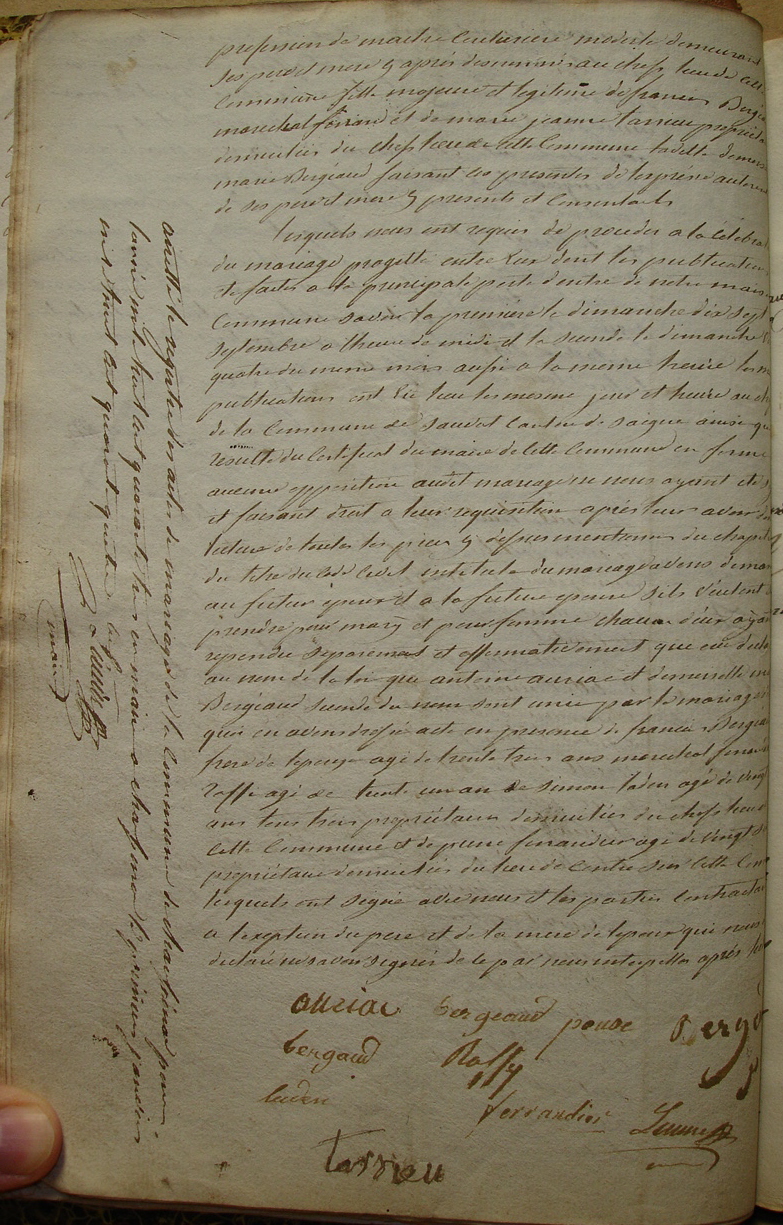 profession de maitre Couturiere modiste demeurant
ses pere et mere cy après denommés au chef lieu de cette
Commune fille majeure et legitime de francois Bergea
marechal ferrand et de marie jeanne tarrieu proprieta
domiciliés du chef lieu de cette Commune
marie Bergeaud faisant les presentes de l'expresse autoris
de ses pere et mere cy presents et Consentants
lesquels nous ont requis de proceder a la Célebra
du mariage progetté entre Eux dont les publications
ete faites a la principale porte d'entrée de notre maison
Commune savoir la premiere le dimanche dix sept
septembre a lheure de midi et la seconde le dimanche
quatre du meme mois aussi a la meme heure les m
publications ont Eu lieu les mesme jour et heure au ch
de la Commune de sauvat Canton de saigne ainsi qu
resulte du Certificat du maire de Cette Commune en forme
aucune opposition audit mariage ne nous ayant eté
et faisant droit a leur requisition après leur avoir do
lecture de toutes les pieces cy dessus mentionnes du chapit
du titre du Code Civil intitulé du mariage avons deman
au futur epoux et a la future epouse sils veulent
prendre pour mary et pour femme chacun d'eux ayan
repondu separement et affirmativement que oui decla
au nom de la loi que antoine auriac et demoiselle m
Bergeaud seconde du nom sont unis par le mariage
quoi en avons dressé acte en presence de francois Bergea
frere de lepouse agé de trente trois ans marechal ferrand
raffy agé de trente un an de simon laden agé de vingt
ans tous trois proprietaires domiciliés du chef lieu d
Cette Commune et de pierre ferrandier agé de vingt
proprietaire domicilié du lieu de Cette Com
lesquels ont signé avec nous et les parties Contractan
a l'exception du pere et de la mere de lepoux qui nous
declaré ne savoir signer de ce par nous interpellés après lec
auriac bergeaud pouse Berge
bergaud Raffy
laden ferrandier
tarrieu
arretté le registre des actes de mariage de la Commune de pour
lannée mil huit cent quarante trois en mairie a le premier janvier
mil huit cent quarante quatre
maire